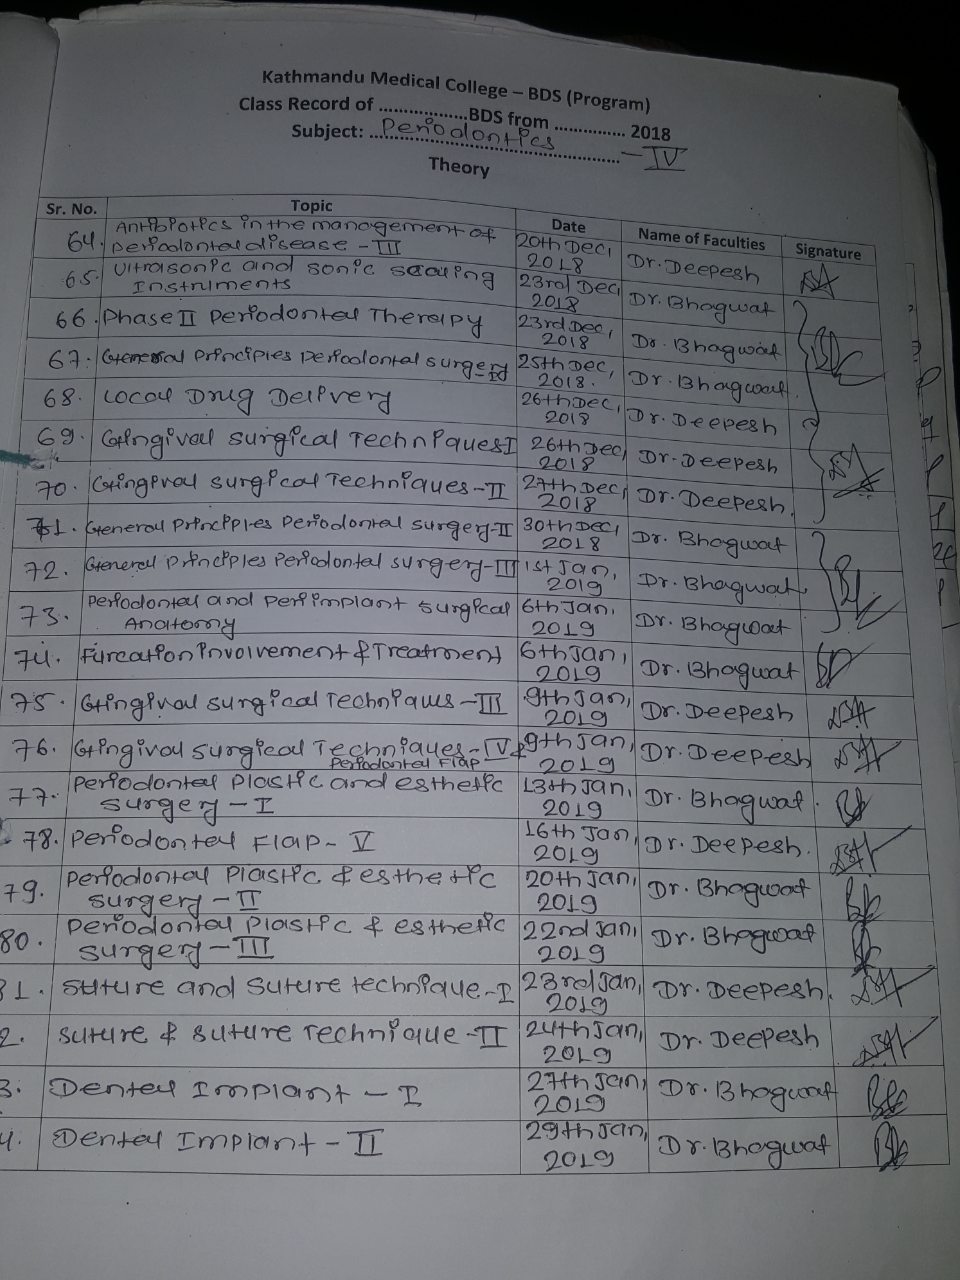 Kathmandu Medical College – BDS (Program)
Class Record of ..................BDS from .............. 2018
Subject: ...Periodontics - IV
Theory
Sr. No. Topic Date Name of Faculties Signature
64. Antibiotics in the management of periodontal disease - III 20th Dec, 2018 Dr. Deepesh
65. Ultrasonic and sonic scaling Instruments 23rd Dec, 2018 Dr. Bhagwat
66. Phase II Periodontal Therapy 23rd Dec, 2018 Dr. Bhagwat
67. General Principles periodontal surgery-I 25th Dec, 2018. Dr. Bhagwat
68. Local Drug Delivery 26th Dec, 2018 Dr. Deepesh
69. Gingival surgical Techniques I 26th Dec, 2018 Dr. Deepesh
70. Gingival surgical Techniques-II 27th Dec, 2018 Dr. Deepesh
71. General Principles Periodontal surgery-II 30th Dec, 2018 Dr. Bhagwat
72. General Principles Periodontal surgery-III 1st Jan, 2019 Dr. Bhagwat
73. Periodontal and Periimplant surgical Anatomy 6th Jan, 2019 Dr. Bhagwat
74. Furcation Involvement & Treatment 6th Jan, 2019 Dr. Bhagwat
75. Gingival surgical Techniques - III 9th Jan, 2019 Dr. Deepesh
76. Gingival surgical Techniques - IV & Periodontal Flap 9th Jan, 2019 Dr. Deepesh
77. Periodontal Plastic and esthetic surgery - I 13th Jan, 2019 Dr. Bhagwat
78. Periodontal Flap - V 16th Jan, 2019 Dr. Deepesh.
79. Periodontal Plastic & esthetic surgery - II 20th Jan, 2019 Dr. Bhagwat
80. Periodontal Plastic & esthetic surgery - III 22nd Jan, 2019 Dr. Bhagwat
1. Suture and Suture technique - I 23rd Jan, 2019 Dr. Deepesh.
2. Suture & suture Technique - II 24th Jan, 2019 Dr. Deepesh
3. Dental Implant - I 27th Jan, 2019 Dr. Bhagwat
4. Dental Implant - II 29th Jan, 2019 Dr. Bhagwat